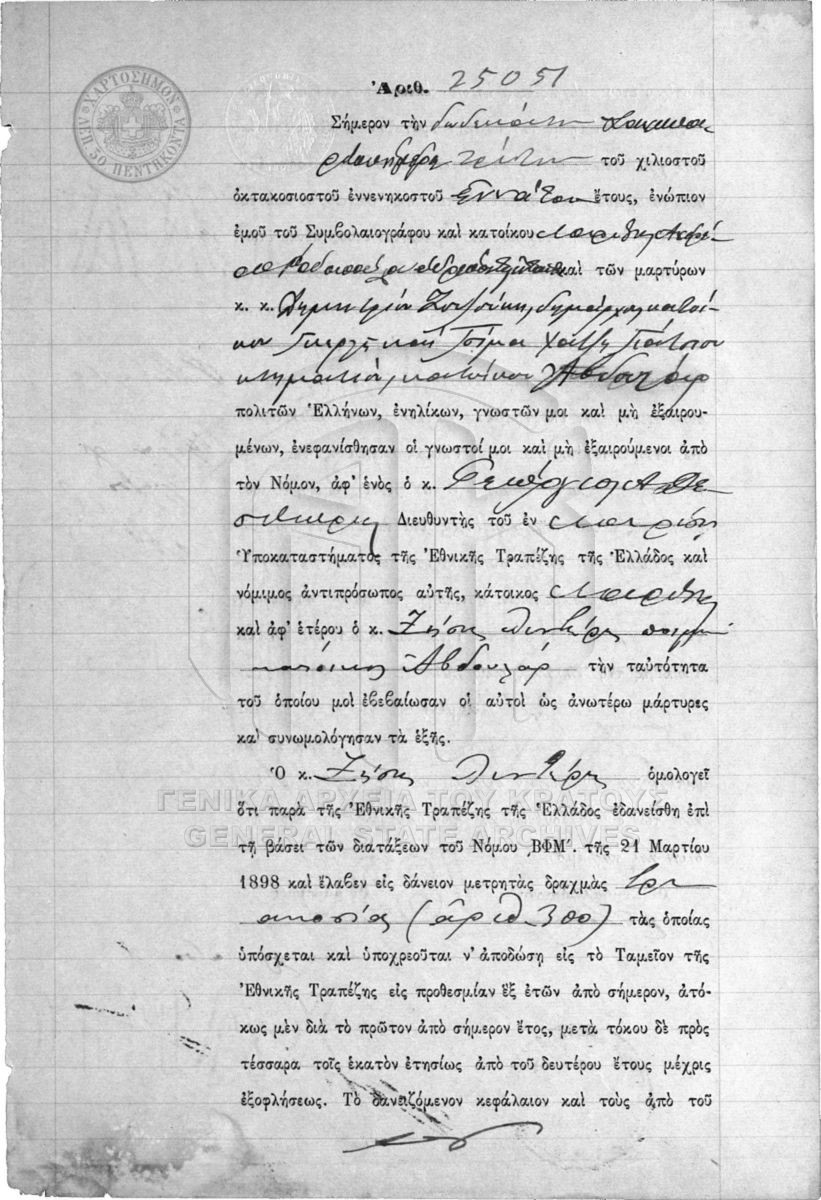 ΧΑΡΤΟΣΗΜΟΝ
ΛΕΠ. 50 ΠΕΝΤΗΚΟΝΤΑ
Ἀριθ. 25051
Σήμερον τὴν δωδεκάτην
τρίτην τοῦ χιλιοστοῦ
ὀκτακοσιοστοῦ ἐννενηκοστοῦ ἐννάτου ἔτους, ἐνώπιον
ἐμοῦ τοῦ Συμβολαιογράφου καὶ κατοίκου Λαρίσης
καὶ τῶν μαρτύρων
κ. κ. Δημητρίου δημάρχου κατοί-
κου καὶ Χατζῆ
κτηματίου, κατοίκου
πολιτῶν Ἑλλήνων, ἐνηλίκων, γνωστῶν μοι καὶ μὴ ἐξαιρου-
μένων, ἐνεφανίσθησαν οἱ γνωστοί μοι καὶ μὴ ἐξαιρούμενοι ἀπὸ
τὸν Νόμον, ἀφ' ἑνὸς ὁ κ. Γεώργιος Α.
Διευθυντὴς τοῦ ἐν Λαρίσῃ
Ὑποκαταστήματος τῆς Ἐθνικῆς Τραπέζης τῆς Ἑλλάδος καὶ
νόμιμος ἀντιπρόσωπος αὐτῆς, κάτοικος Λαρίσης
καὶ ἀφ' ἑτέρου ὁ κ. Ζήσης
κάτοικος Ἀβδουλάρ τὴν ταὐτότητα
τοῦ ὁποίου μοὶ ἐβεβαίωσαν οἱ αὐτοὶ ὡς ἀνωτέρω μάρτυρες
καὶ συνωμολόγησαν τὰ ἑξῆς.
Ὁ κ. Ζήσης ὁμολογεῖ
ΓΕΝΙΚΑ ΑΡΧΕΙΑ ΤΟΥ ΚΡΑΤΟΥΣ
ὅτι παρὰ τῆς Ἐθνικῆς Τραπέζης τῆς Ἑλλάδος ἐδανείσθη ἐπὶ
GENERAL STATE ARCHIVES
τῇ βάσει τῶν διατάξεων τοῦ Νόμου ͵ΒΦΜ΄. τῆς 21 Μαρτίου
1898 καὶ ἔλαβεν εἰς δάνειον μετρητὰς δραχμὰς τρι
ακοσίας (ἀριθ. 300) τὰς ὁποίας
ὑπόσχεται καὶ ὑποχρεοῦται ν' ἀποδώσῃ εἰς τὸ Ταμεῖον τῆς
Ἐθνικῆς Τραπέζης εἰς προθεσμίαν ἓξ ἐτῶν ἀπὸ σήμερον, ἀτό-
κως μὲν διὰ τὸ πρῶτον ἀπὸ σήμερον ἔτος, μετὰ τόκου δὲ πρὸς
τέσσαρα τοῖς ἑκατὸν ἐτησίως ἀπὸ τοῦ δευτέρου ἔτους μέχρις
ἐξοφλήσεως. Τὸ δανειζόμενον κεφάλαιον καὶ τοὺς ἀπὸ τοῦ